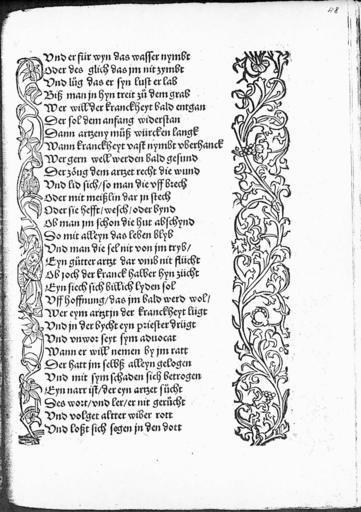 48
Vnd er für wyn das wasser nymbt
Oder des glich das jm nit zymbt
Vnd lůg das er syn lust er lab
Biß man jn hyn treit zů dem grab
Wer will der kranckheyt bald entgan
Der sol dem anfang widerstan
Dann artzeny můß würcken langk
Wann kranckheyt vast nymbt vberhanck
Wer gern well werden bald gesund
Der zöug dem artzet recht die wund
Vnd lid sich / so man die vff brech
Oder mit meißlin dar jn stech
Oder sie hefft / wesch / oder bynd
Ob man jm schon die hut abschynd
So mit alleyn das leben blyb
Vnd man die sel nit von jm tryb /
Eyn gůtter artzt dar vmb nit flücht
Ob joch der kranck halber hyn zücht
Eyn siech sich billich lyden sol
Vff hoffnung / das jm bald werd wol /
Wer eym artzt jn der kranckheyt lügt
Vnd jn der bycht eyn priester trügt
Vnd vnwor seyt sym aduocat
Wann er will nemen by jm ratt
Der hatt jm selbß alleyn gelogen
Vnd mit sym schaden sich betrogen
Eyn narr ist / der eyn artzet sücht
Des wort / vnd ler / er nit gerücht
Vnd volget altter wiber rott
Vnd loßt sich segen jn den dott